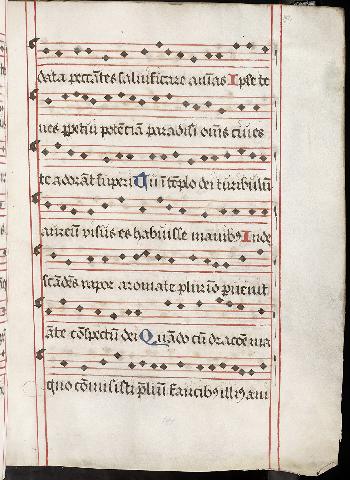 data peccātes saluificare aīas Ipse te
nes ppetui potētiā paradisi oīns ciues
te adorāt superi Qui ī tēplo dei turibulū
aureū visus es habuisse manibꝰ Inde
scādēs vapor aromate plurīo puenit
āte cōspectū dei Quādo cū dracōe ma
gno cōmisisti pliū faucibꝰ illiꝰ ani